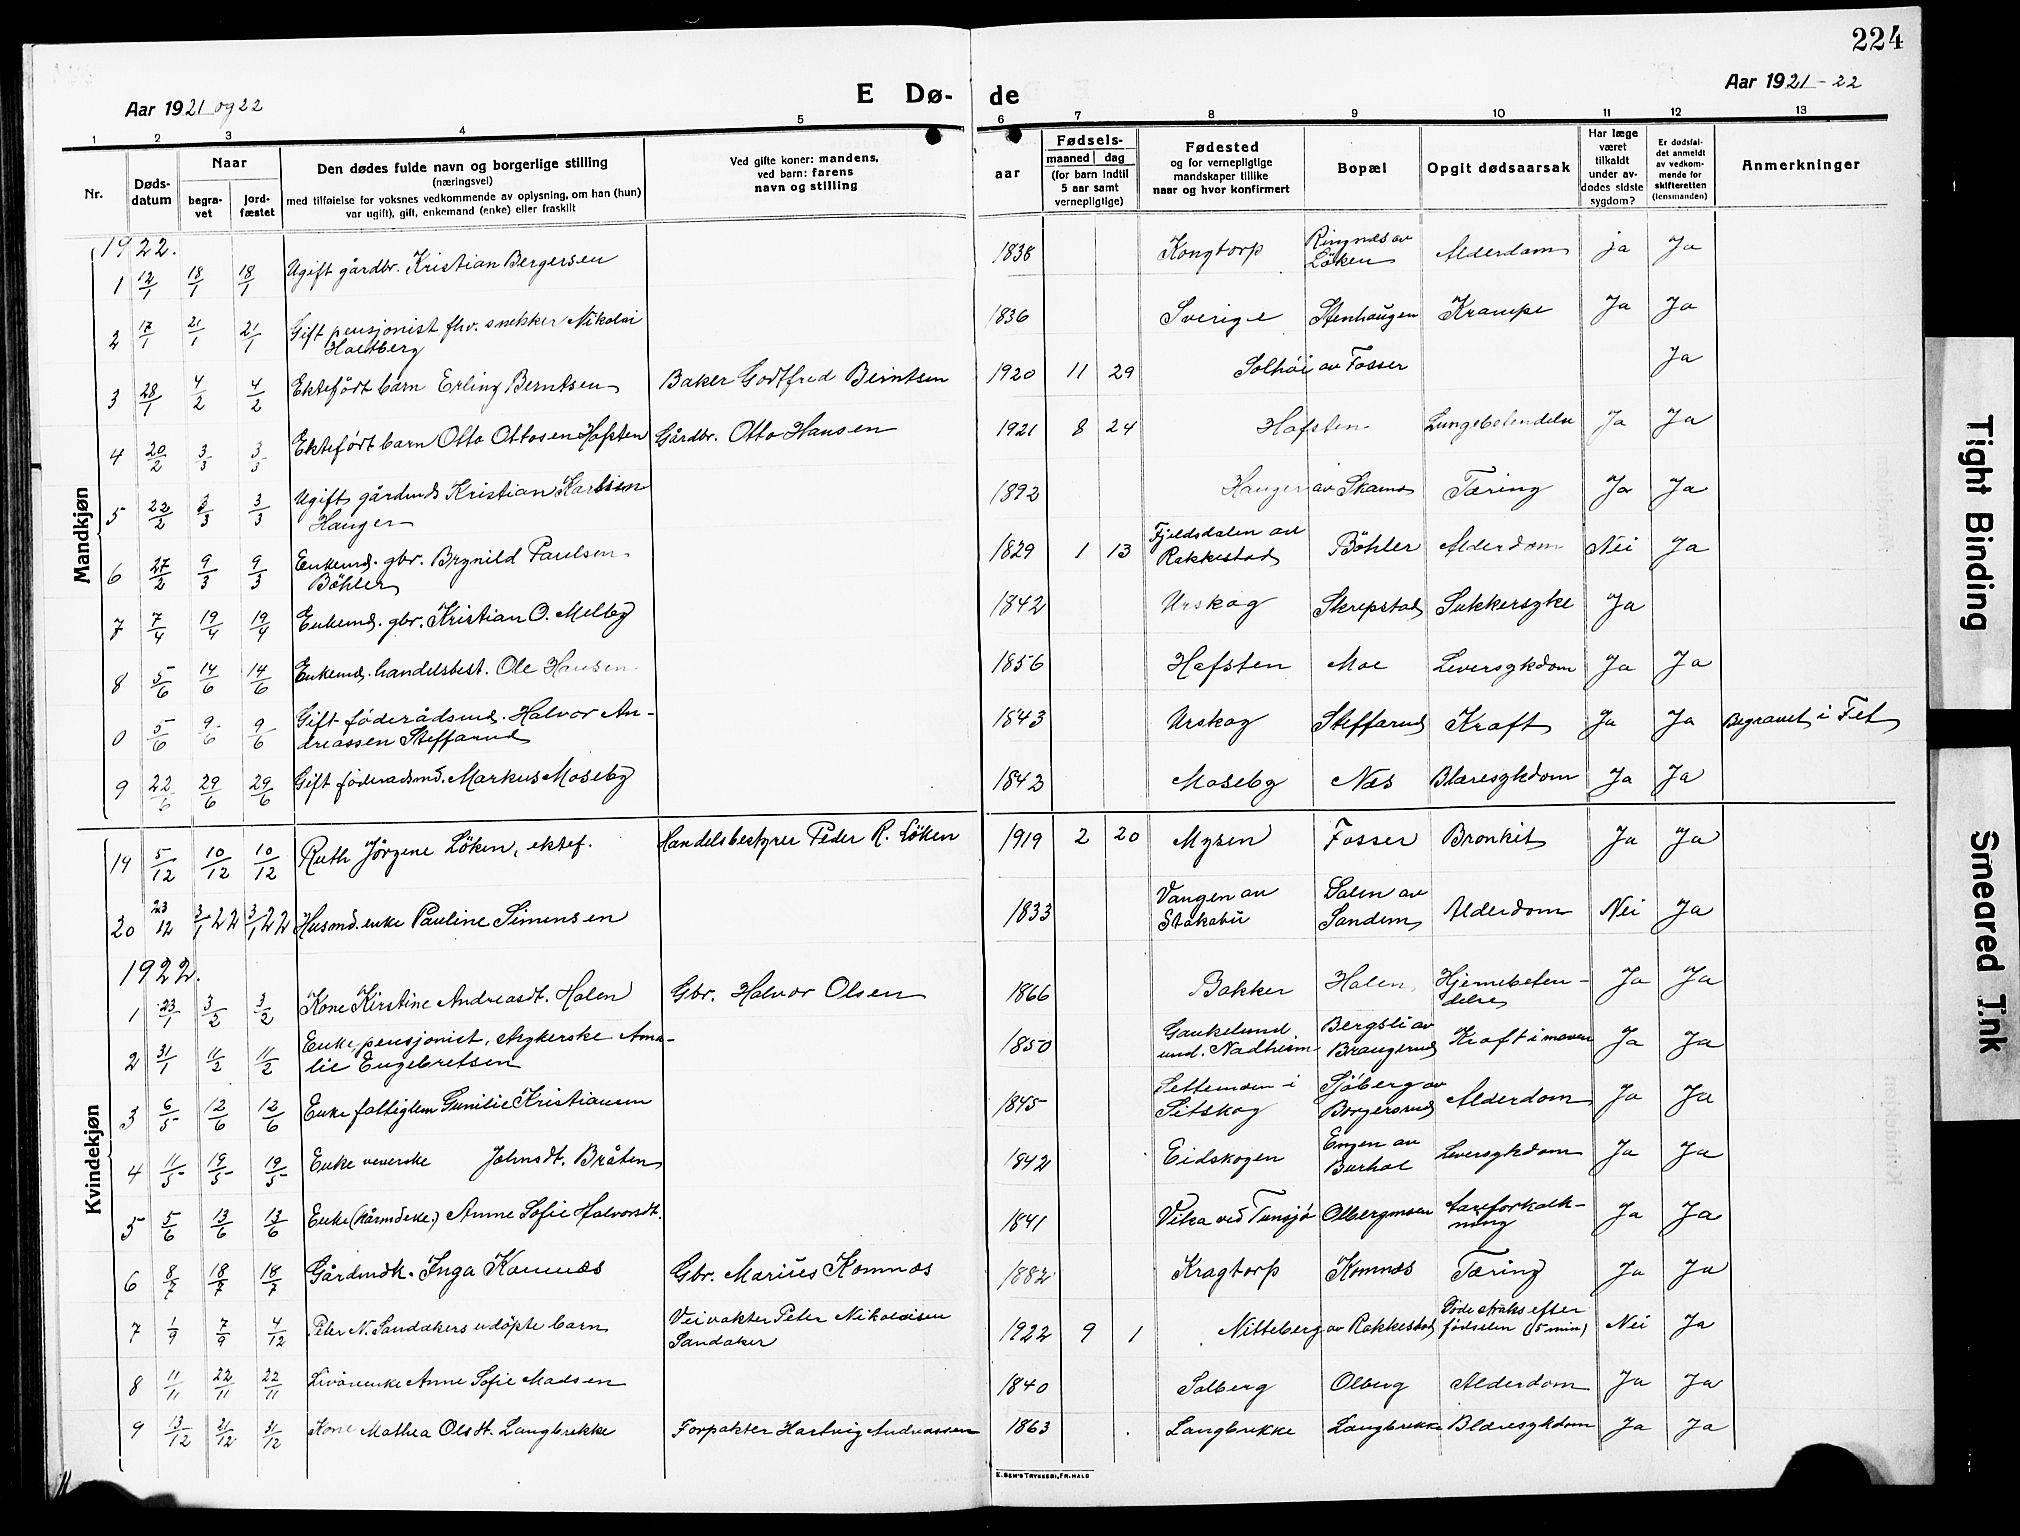 224
Aar 1921 og 22
E Dø-
de
Aar 1921-22
1 2 3 4 5 6 7 8 9 10 11 12 13
Nr.
Døds-
datum
Naar
begra-
vet
jord-
fæstet
Den dødes fulde navn og borgerlige stilling
(næringsvei)
med tilføielse for voksnes vedkommende av oplysning, om han (hun)
var ugift), gift, enkemand (enke) eller fraskilt
Ved gifte koner: mandens,
ved barn: farens
navn og stilling
aar
Fødsels-
maaned dag
(for barn indtil
5 aar samt
vernepligtige)
Fødested
og for vernepligtige
mandskaper tillike
naar og hvor konfirmert
Bopæl
Opgit dødsaarsak
Har læge
været
tilkaldt
under av-
dødes sidste
sygdom?
Er dødsfal-
det anmeldt
av vedkom-
mende for
skifteretten
(lensmanden)
Anmerkninger
Mandkjøn
1922.
1 12/1 18/1 18/1 Ugift gårdbr. Kristian Bergersen 1838 Kongtorp Ringnæs av Löken Alderdom ja Ja
2 17/1 21/1 21/1 Gift pensjonist fhv. snekker Nikolai
Holtberg 1836 Sverige Stenhaugen Krampe Ja Ja
3 28/1 4/2 4/2 Ektefödt barn Erling Berntsen Baker Godtfred Berntsen 1920 11 29 Solhöi av Fosser Ja
4 20/2 3/3 3/3 Ektefödt barn Otto Ottosen Hofsten Gårdbr. Otto Hansen 1921 8 24 Hofsten Lungebetendelse Ja Ja
5 22/2 3/3 3/3 Ugift gårdmds Kristian Karlsen
Hanger 1892 Hanger av Skamo Tæring Ja Ja
6 27/2 9/3 9/3 Enkemd. gbr. Brynild Paulsen
Böhler 1829 1 13 Fjeldsdalen av Rakkestad Böhler Alderdom Nei Ja
7 7/4 19/4 19/4 Enkemd. gbr. Kristian O. Melby 1842 Urskog Skrepstad Sukkersyke Ja
8 5/6 14/6 14/6 Enkemd. handelsbest. Ole Hansen 1856 Hafsten Moe Leversykdom Ja Ja
0 5/6 9/6 9/6 Gift föderådsmd. Halvor An-
dreassen Steffarud 1843 Urskog Steffarud Kræft Ja Ja Begravet i Fet
9 22/6 29/6 29/6 Gift föderadsmd. Markus Moseby 1842 Moseby Næs Blæresykdom Ja Ja
Kvindekjøn
19 5/12 10/12 10/12 Ruth Jörgine Löken, ektef. Handelsbestyrer Peder R. Löken 1919 2 20 Mysen Fosser Bronkit Ja Ja
20 23/12 3/1 22 3/1 22 Husmd. enke Pauline Simensen 1833 Vangen av Stakabu Dalen av Sandem Alderdom Nei Ja
1922.
1 23/1 3/2 3/2 Kone Kirstine Andreasdt. Holen Gbr. Halvor Olsen 1866 Bakker Holen Hjernebeten-
delse Ja Ja
2 31/1 11/2 11/2 Enke, pensjonist, strykerske Ama-
lie Engebretsen 1850 Gaukelund und. Nadheim Bergsli av Brangerud Kræft i maven Ja Ja
3 6/5 12/6 12/6 Enke fattiglem Gunilie Kristiansen 1845 Settemoen i Setskog Sjöberg av Borgersrud Alderdom Ja Ja
4 11/5 19/5 19/5 Enke veverske Johnsdt. Bråten 1842 Eidskogen Engen av Burhol Leversykdom Ja Ja
5 5/6 13/6 13/6 Enke (kårmdeke.) Anne Sofie Halvorsdt. 1841 Vika ved Tunsjö Olbergmosen Aareforkalk-
ning Ja Ja
6 8/7 18/7 18/7 Gårdmdk. Inga Komnæs Gbr. Marius Komnæs 1882 Kragtorp Komnæs Tæring Ja Ja
7 1/9 7/9 4/12 Peter N. Sandakers udöpte barn Veivakter Peter Nikolaisen
Sandaker 1922 9 1 Nitteberg av Rakkestad Döde straks efter
födselen (15 min) Nei Ja
8 11/11 22/11 22/11 Livöreenke Anne Sofie Madsen 1840 Solberg Olberg Alderdom Ja Ja
9 13/12 21/12 21/12 Kone Mathea Olsdt. Langbrekke Forpakter Hartvig Andreassen 1863 Langbrekke Langbrekke Blæresykdom Ja Ja
E. SEM'S TRYKKERI, FR.HALD
Tight Binding
Smeared Ink